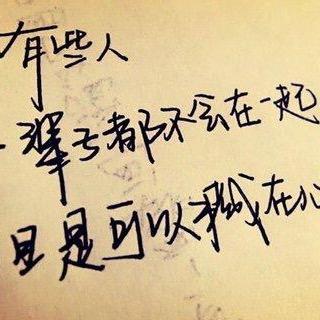 有些人
一辈子都不会在一起
但是可以藏在心